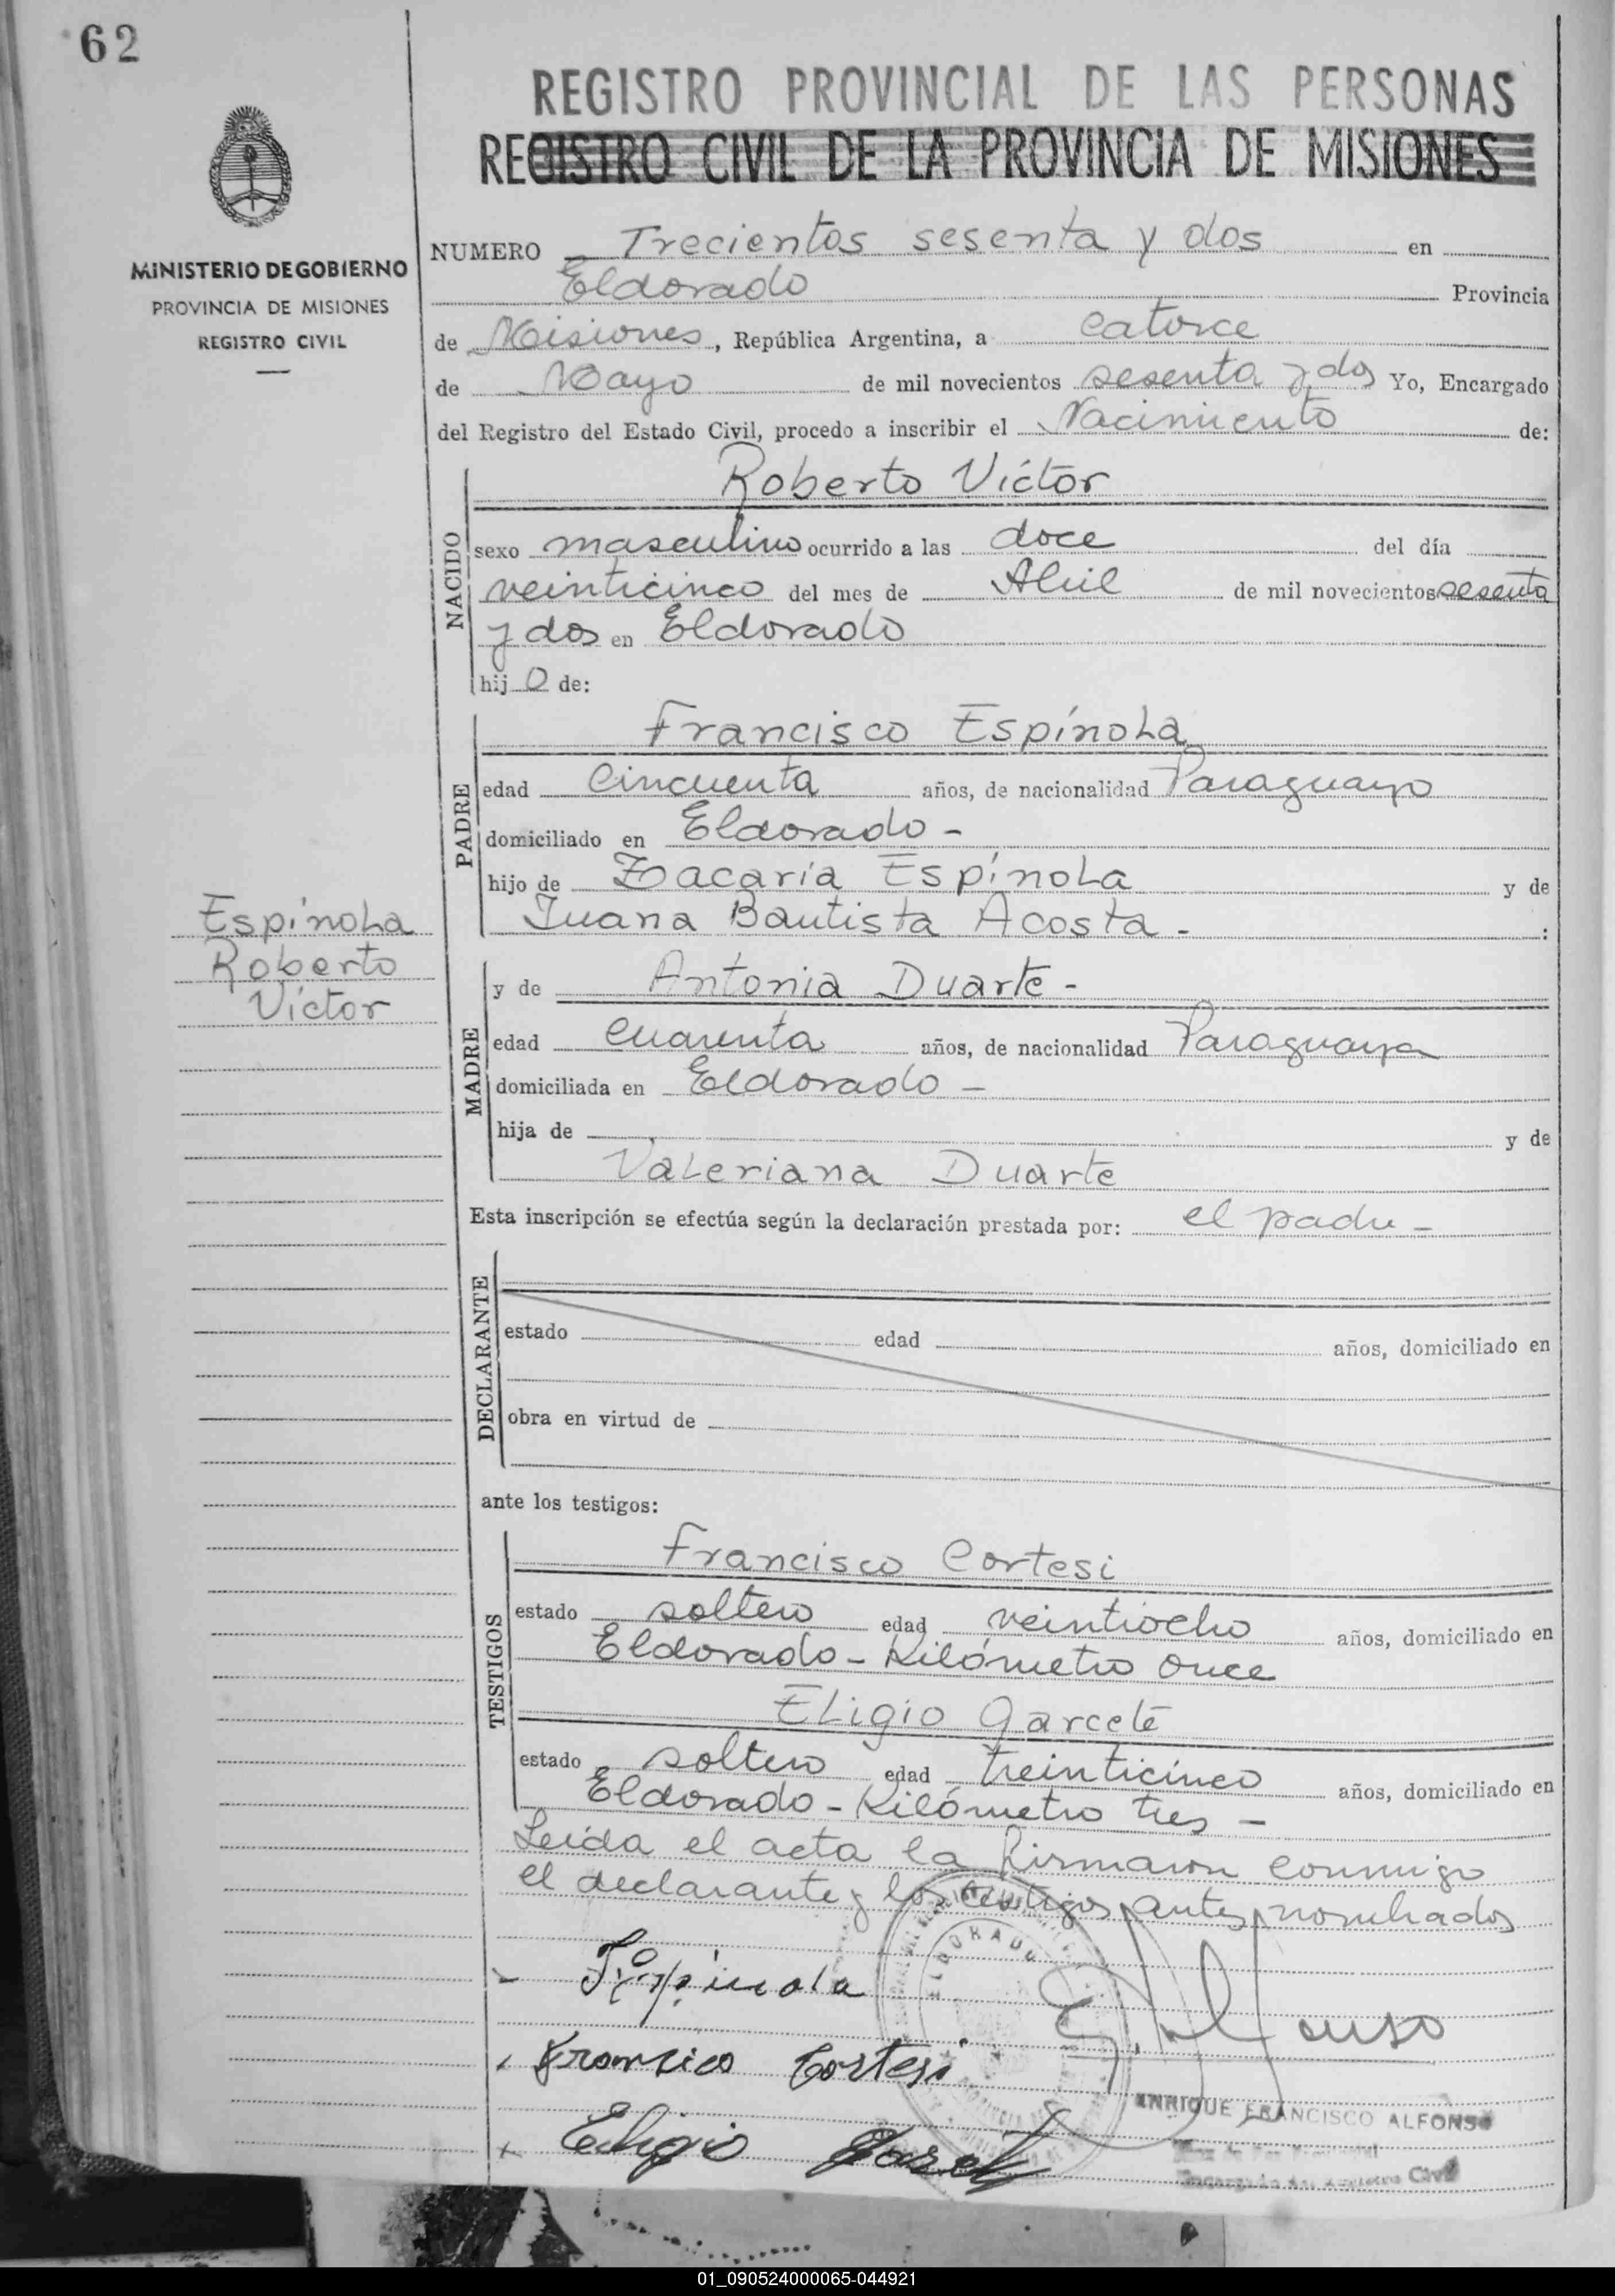 62
REGISTRO PROVINCIAL DE LAS PERSONAS
REGISTRO CIVIL DE LA PROVINCIA DE MISIONES
MINISTERIO DE GOBIERNO
PROVINCIA DE MISIONES
REGISTRO CIVIL
NUMERO Trecientos sesenta y dos en
Eldorado Provincia
de Misiones, República Argentina, a catorce
de Mayo de mil novecientos sesenta y dos Yo, Encargado
del Registro del Estado Civil, procedo a inscribir el Nacimiento de:
NACIDO
Roberto Víctor
sexo masculino ocurrido a las doce del día
veinticinco del mes de Abril de mil novecientos sesenta
y dos en Eldorado
hijo de:
PADRE
Francisco Espínola
edad cincuenta años, de nacionalidad Paraguayo
domiciliado en Eldorado -
hijo de Zacaría Espínola y de
Juana Bautista Acosta -
Espínola
Roberto
Víctor
MADRE
y de Antonia Duarte -
edad cuarenta años, de nacionalidad Paraguaya
domiciliada en Eldorado -
hija de y de
Valeriana Duarte
Esta inscripción se efectúa según la declaración prestada por: el padre -
DECLARANTE
estado edad años, domiciliado en
obra en virtud de
ante los testigos:
TESTIGOS
Francisco Cortesi
estado soltero edad veintiocho años, domiciliado en
Eldorado - Kilómetro once
Eligio Garcete
estado soltero edad treinticinco años, domiciliado en
Eldorado - Kilómetro tres -
Leída el acta la firmaron conmigo
el declarante y los testigos antes nombrados
Espínola
Francisco Cortesi
Eligio
ELDORADO
E. Alfonso
ENRIQUE FRANCISCO ALFONSO
Encargado del Registro Civil
01_090524000065-044921